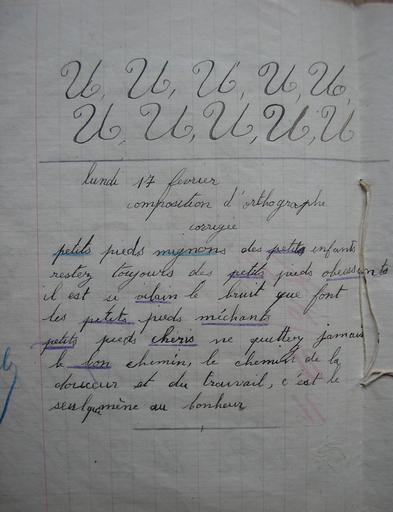 U, U, U, U, U,
U, U, U, U, U
lundi 17 fevrier
composition d'orthographe
corrigée
petits pieds mignons des petits enfants
restez toujours des petits pieds obeissants
il est si vilain le bruit que font
les petits pieds méchants
petits pieds chéris ne quittez jamais
le bon chemin, le chemin de la
douceur et du travail, c'est le
seul qui mène au bonheur